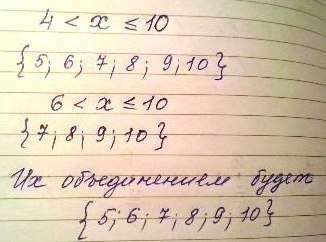 4 < x ≤ 10
{5; 6; 7; 8; 9; 10}
6 < x ≤ 10
{7; 8; 9; 10}
Их объединением будет
{5; 6; 7; 8; 9; 10}